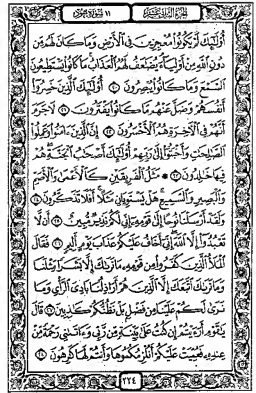 الجزء الثاني عشر ١١ سورة هود
أُوْلَٰٓئِكَ لَمْ يَكُونُوا۟ مُعْجِزِينَ فِى ٱلْأَرْضِ وَمَا كَانَ لَهُم مِّن
دُونِ ٱللَّهِ مِنْ أَوْلِيَآءَ يُضَٰعَفُ لَهُمُ ٱلْعَذَابُ مَا كَانُوا۟ يَسْتَطِيعُونَ
ٱلسَّمْعَ وَمَا كَانُوا۟ يُبْصِرُونَ ٢٠ أُوْلَٰٓئِكَ ٱلَّذِينَ خَسِرُوٓا۟
أَنفُسَهُمْ وَضَلَّ عَنْهُم مَّا كَانُوا۟ يَفْتَرُونَ ٢١ لَا جَرَمَ
أَنَّهُمْ فِى ٱلْءَاخِرَةِ هُمُ ٱلْأَخْسَرُونَ ٢٢ إِنَّ ٱلَّذِينَ ءَامَنُوا۟ وَعَمِلُوا۟
ٱلصَّٰلِحَٰتِ وَأَخْبَتُوٓا۟ إِلَىٰ رَبِّهِمْ أُوْلَٰٓئِكَ أَصْحَٰبُ ٱلْجَنَّةِ هُمْ
فِيهَا خَٰلِدُونَ ٢٣ مَثَلُ ٱلْفَرِيقَيْنِ كَٱلْأَعْمَىٰ وَٱلْأَصَمِّ
وَٱلْبَصِيرِ وَٱلسَّمِيعِ هَلْ يَسْتَوِيَانِ مَثَلًا أَفَلَا تَذَكَّرُونَ ٢٤
وَلَقَدْ أَرْسَلْنَا نُوحًا إِلَىٰ قَوْمِهِۦٓ إِنِّى لَكُمْ نَذِيرٌ مُّبِينٌ ٢٥ أَن لَّا
تَعْبُدُوٓا۟ إِلَّا ٱللَّهَ إِنِّىٓ أَخَافُ عَلَيْكُمْ عَذَابَ يَوْمٍ أَلِيمٍ ٢٦ فَقَالَ
ٱلْمَلَأُ ٱلَّذِينَ كَفَرُوا۟ مِن قَوْمِهِۦ مَا نَرَىٰكَ إِلَّا بَشَرًا مِّثْلَنَا
وَمَا نَرَىٰكَ ٱتَّبَعَكَ إِلَّا ٱلَّذِينَ هُمْ أَرَاذِلُنَا بَادِىَ ٱلرَّأْىِ وَمَا
نَرَىٰ لَكُمْ عَلَيْنَا مِن فَضْلٍۭ بَلْ نَظُنُّكُمْ كَٰذِبِينَ ٢٧ قَالَ
يَٰقَوْمِ أَرَءَيْتُمْ إِن كُنتُ عَلَىٰ بَيِّنَةٍ مِّن رَّبِّى وَءَاتَىٰنِى رَحْمَةً مِّنْ
عِندِهِۦ فَعُمِّيَتْ عَلَيْكُمْ أَنُلْزِمُكُمُوهَا وَأَنتُمْ لَهَا كَٰرِهُونَ ٢٨
٢٢٤